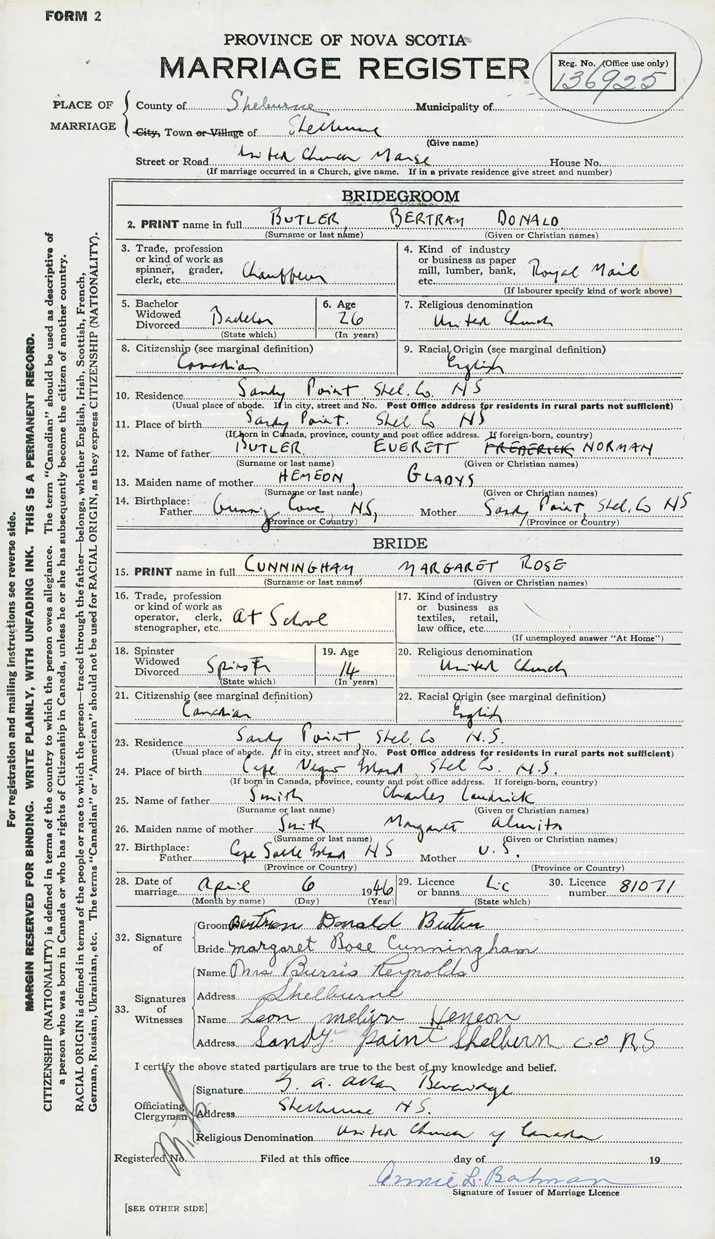 FORM 2
PROVINCE OF NOVA SCOTIA
MARRIAGE REGISTER
Reg. No. (Office use only)
136925
PLACE OF MARRIAGE
County of Shelburne Municipality of
City, Town or Village of Shelburne
(Give name)
Street or Road United Church Manse House No.
(If marriage occurred in a Church, give name. If in a private residence give street and number)
BRIDEGROOM
2. PRINT name in full BUTLER BERTRAM DONALD
(Surname or last name) (Given or Christian names)
3. Trade, profession or kind of work as spinner, grader, clerk, etc. Chauffeur
4. Kind of industry or business as paper mill, lumber, bank, etc. Royal Mail
(If labourer specify kind of work above)
5. Bachelor Widowed Divorced Bachelor
(State which)
6. Age 26
(In years)
7. Religious denomination
United Church
8. Citizenship (see marginal definition)
Canadian
9. Racial Origin (see marginal definition)
English
10. Residence Sandy Point Shel. Co. NS
(Usual place of abode. If in city, street and No. Post Office address for residents in rural parts not sufficient)
11. Place of birth Sandy Point. Shel. Co NS
(If born in Canada, province, county and post office address. If foreign-born, country)
12. Name of father BUTLER EVERETT FREDERICK NORMAN
(Surname or last name) (Given or Christian names)
13. Maiden name of mother HEMEON GLADYS
(Surname or last name) (Given or Christian names)
14. Birthplace: Father Gunning Cove, NS, Mother Sandy Point, Shel. Co NS
(Province or Country) (Province or Country)
BRIDE
15. PRINT name in full CUNNINGHAM MARGARET ROSE
(Surname or last name) (Given or Christian names)
16. Trade, profession or kind of work as operator, clerk, stenographer, etc. At School
17. Kind of industry or business as textiles, retail, law office, etc.
(If unemployed answer "At Home")
18. Spinster Widowed Divorced Spinster
(State which)
19. Age 14
(In years)
20. Religious denomination
United Church
21. Citizenship (see marginal definition)
Canadian
22. Racial Origin (see marginal definition)
English
23. Residence Sandy Point, Shel. Co N.S.
(Usual place of abode. If in city, street and No. Post Office address for residents in rural parts not sufficient)
24. Place of birth Cape Negro Island, Shel Co. N.S.
(If born in Canada, province, county and post office address. If foreign-born, country)
25. Name of father Smith Charles
(Surname or last name) (Given or Christian names)
26. Maiden name of mother Smith Margaret
(Surname or last name) (Given or Christian names)
27. Birthplace: Father Cape Sable Island NS Mother U.S.
(Province or Country) (Province or Country)
28. Date of marriage April 6 1946
(Month by name) (Day) (Year)
29. Licence or banns Lic
(State which)
30. Licence number 81071
32. Signature of
Groom Bertram Donald Butler
Bride Margaret Rose Cunningham
33. Signatures of Witnesses
Name Mrs Burris Reynolds
Address Shelburne
Name Leon Melvin Hemeon
Address Sandy point Shelbern co NS
I certify the above stated particulars are true to the best of my knowledge and belief.
Officiating Clergyman
Signature G. A. Allan Beveridge
Address Shelburne N.S.
Religious Denomination United Church of Canada
Registered No. Filed at this office day of 19
Annie L. Bahman
Signature of Issuer of Marriage Licence
[SEE OTHER SIDE]
For registration and mailing instructions see reverse side.
MARGIN RESERVED FOR BINDING. WRITE PLAINLY, WITH UNFADING INK. THIS IS A PERMANENT RECORD.
CITIZENSHIP (NATIONALITY) is defined in terms of the country to which the person owes allegiance. The term "Canadian" should be used as descriptive of
a person who was born in Canada or who has rights of Citizenship in Canada, unless he or she has subsequently become the citizen of another country.
RACIAL ORIGIN is defined in terms of the people or race to which the person—traced through the father—belongs, whether English, Irish, Scottish, French,
German, Russian, Ukrainian, etc. The terms "Canadian" or "American" should not be used for RACIAL ORIGIN, as they express CITIZENSHIP (NATIONALITY).